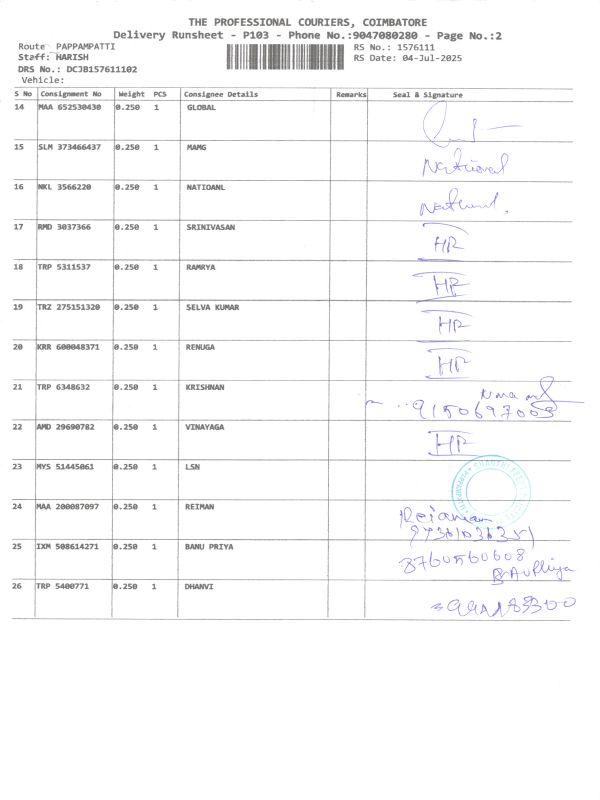 THE PROFESSIONAL COURIERS, COIMBATORE
Delivery Runsheet - P103 - Phone No.:9047080280 - Page No.:2
Route PAPPAMPATTI RS No.: 1576111
Staff: HARISH RS Date: 04-Jul-2025
DRS No.: DCJB157611102
Vehicle:
S No Consignment No Weight PCS Consignee Details Remarks Seal & Signature
14 MAA 652530430 0.250 1 GLOBAL
15 SLM 373466437 0.250 1 MAMG National
16 NKL 3566220 0.250 1 NATIOANL
17 RMD 3037366 0.250 1 SRINIVASAN HR
18 TRP 5311537 0.250 1 RAMRYA HR
19 TRZ 275151320 0.250 1 SELVA KUMAR HR
20 KRR 600048371 0.250 1 RENUGA HR
21 TRP 6348632 0.250 1 KRISHNAN
9150697003
22 AMD 29690782 0.250 1 VINAYAGA HR
23 MYS 51445061 0.250 1 LSN
24 MAA 200087097 0.250 1 REIMAN
25 IXM 508614271 0.250 1 BANU PRIYA 8760560608
26 TRP 5400771 0.250 1 DHANVI